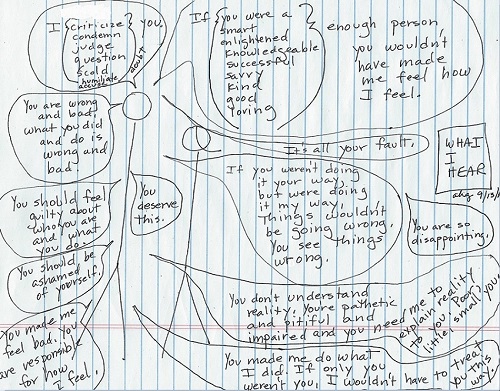 I { criticize
condemn
judge
question
scold
humiliate
accuse
doubt } you.
If { you were a
smart
enlightened
knowledgeable
successful
savvy
kind
good
loving }
enough person
you wouldn't
have made
me feel how
I feel.
You are wrong
and bad,
what you did
and do is
wrong and
bad.
It's all your fault.
WHAT
I
HEAR
If you weren't doing
it your way,
but were doing
it my way,
Things wouldn't
be going wrong.
You see things
wrong.
You should feel
guilty about
who you are
and what
you do.
You
deserve
this.
You are so
disappointing.
You should be
ashamed
of yourself.
You don't understand
reality. You're pathetic
and pitiful and
impaired and you need me to
explain reality
to you. Poor,
little, small you.
You made me
feel bad. You
are responsible
for how
I feel.
You made me do what
I did. If only you
weren't you, I wouldn't have to treat
you this
way.